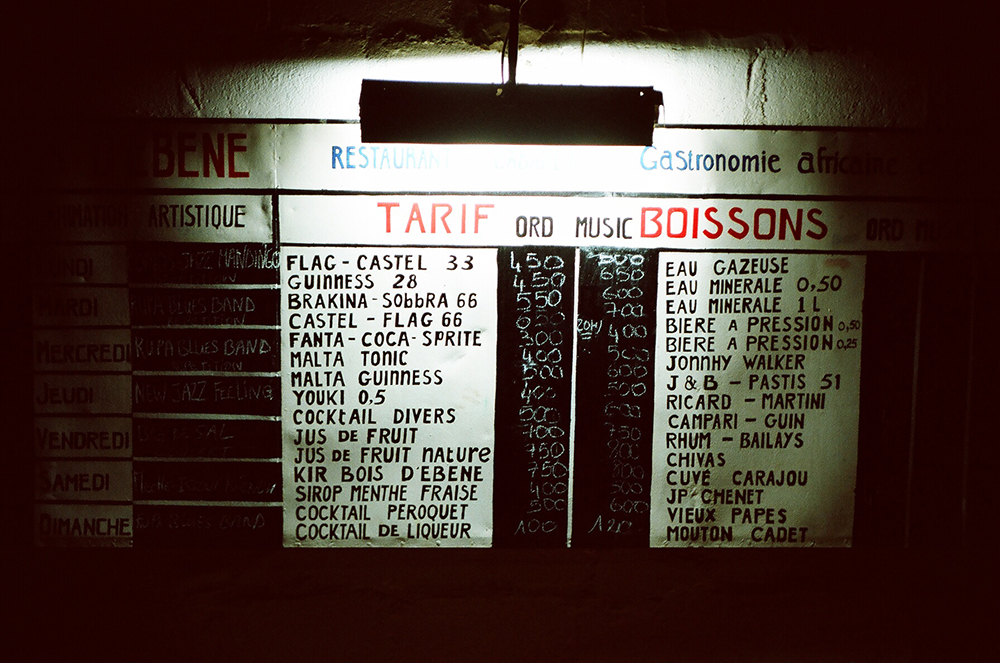 EBENE
RESTAURANT
Gastronomie africaine
ARTISTIQUE
TARIF ORD MUSIC
BOISSONS ORD
LUNDI JAZZ MANDINGO
MARDI BLUES BAND
MERCREDI BLUES BAND
JEUDI NEW JAZZ FEELING
VENDREDI
SAMEDI
DIMANCHE BLUES BAND
FLAG - CASTEL 33 450
GUINNESS 28 450 650
BRAKINA - SObbRA 66 550 600
CASTEL - FLAG 66 700
FANTA - COCA - SPRITE 300 400
MALTA TONIC 400 500
MALTA GUINNESS 500 600
YOUKI 0,5 400 500
COCKTAIL DIVERS 500
JUS DE FRUIT 700
JUS DE FRUIT nature 750
KIR BOIS D'EBENE 750
SIROP MENTHE FRAISE 400
COCKTAIL PEROQUET 500 600
COCKTAIL DE LIQUEUR
EAU GAZEUSE
EAU MINERALE 0,50
EAU MINERALE 1 L
BIERE A PRESSION 0,50
BIERE A PRESSION 0,25
JONNHY WALKER
J & B - PASTIS 51
RICARD - MARTINI
CAMPARI - GUIN
RHUM - BAILAYS
CHIVAS
CUVÉ CARAJOU
JP CHENET
VIEUX PAPES
MOUTON CADET